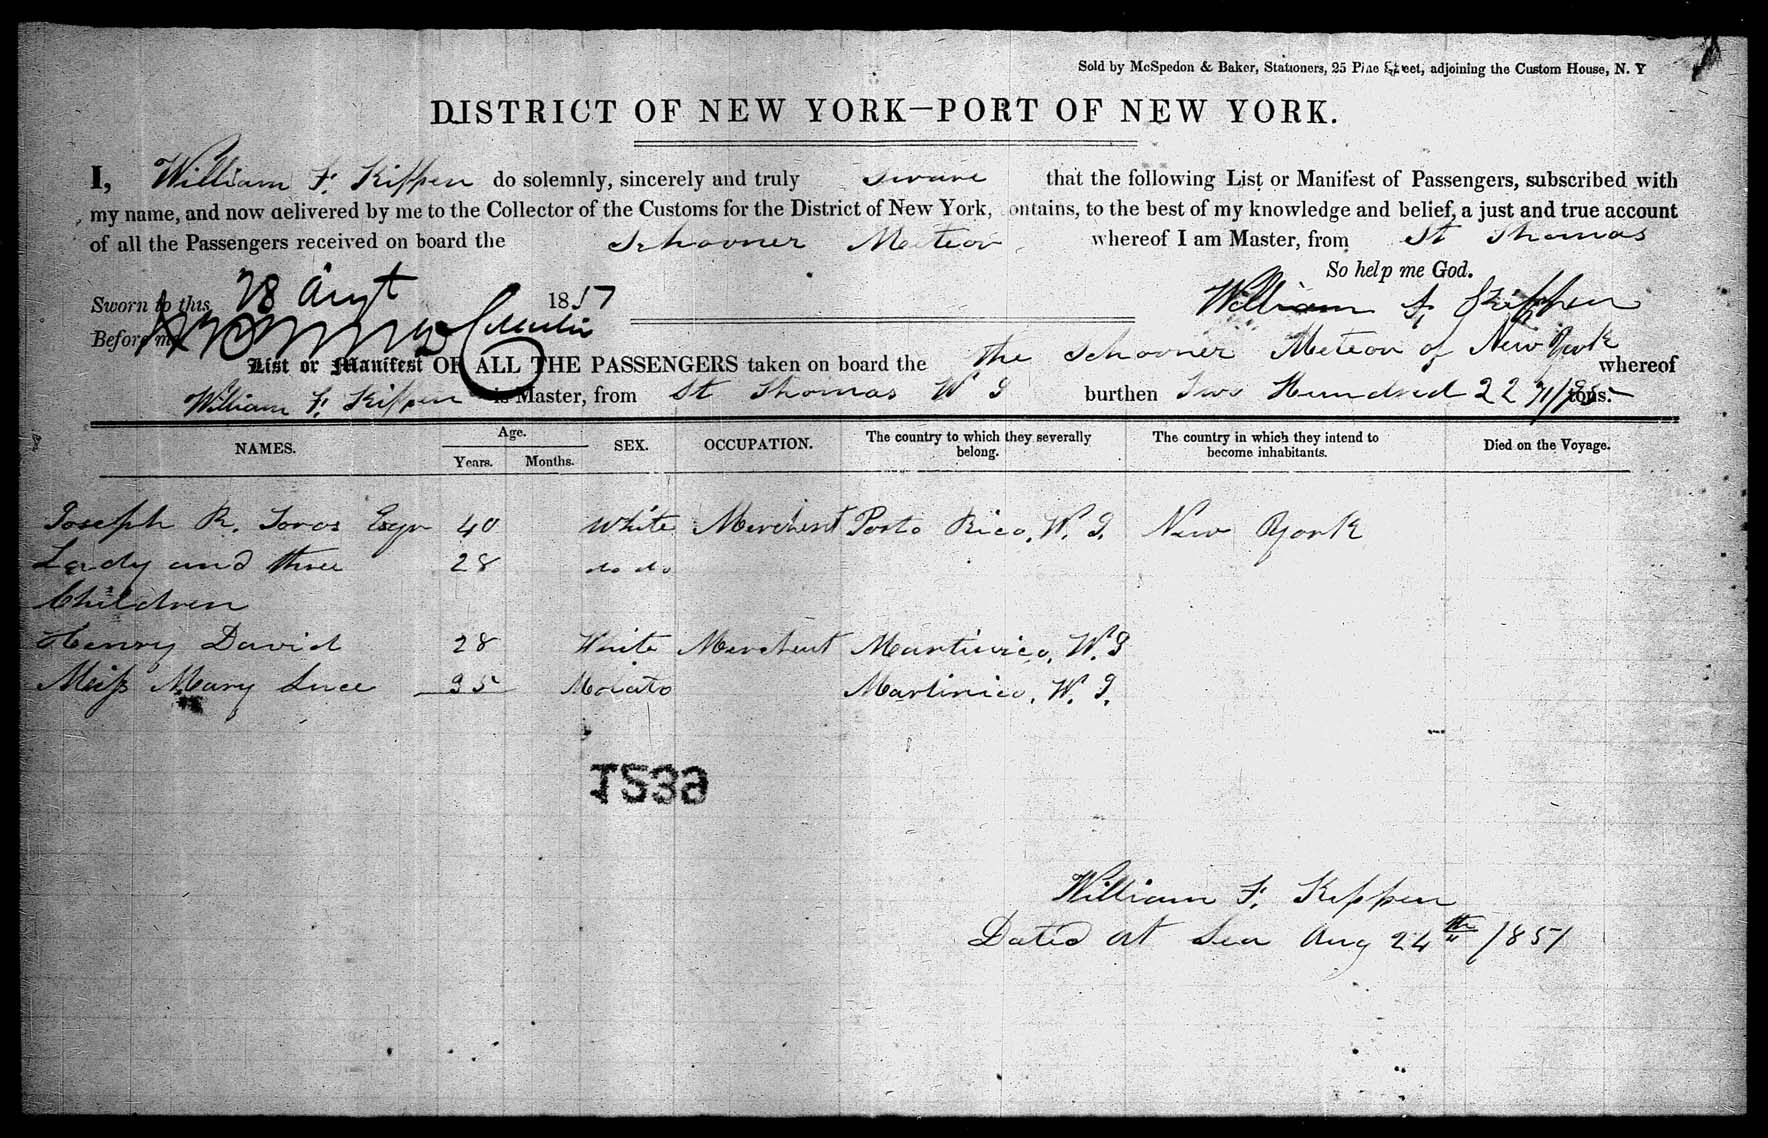 Sold by McSpedon & Baker, Stationers, 25 Pine Street, adjoining the Custom House, N. Y
DISTRICT OF NEW YORK—PORT OF NEW YORK.
I, William F. Kippen do solemnly, sincerely and truly Sware that the following List or Manifest of Passengers, subscribed with
my name, and now delivered by me to the Collector of the Customs for the District of New York, contains, to the best of my knowledge and belief, a just and true account
of all the Passengers received on board the Schooner Meteor whereof I am Master, from St Thomas
So help me God.
Sworn to this 28 Augt 1857 William F. Kippen
Before me
List or Manifest OF ALL THE PASSENGERS taken on board the the Schooner Meteor of New York whereof
William F. Kippen is Master, from St Thomas W I burthen Two Hundred 22 71/95 tons.
NAMES. Age. Years. Months. SEX. OCCUPATION. The country to which they severally belong. The country in which they intend to become inhabitants. Died on the Voyage.
Joseph R. Toros Esqr 40 White Merchent Porto Rico, W. I. New York
Lady and three 28 do do
Children
Henry David 28 White Merchent Martinico, W. I
Miss Mary Luce 35 Molato Martinico, W. I.
1239
William F. Kippen
Dated at Sea Aug 24th 1857